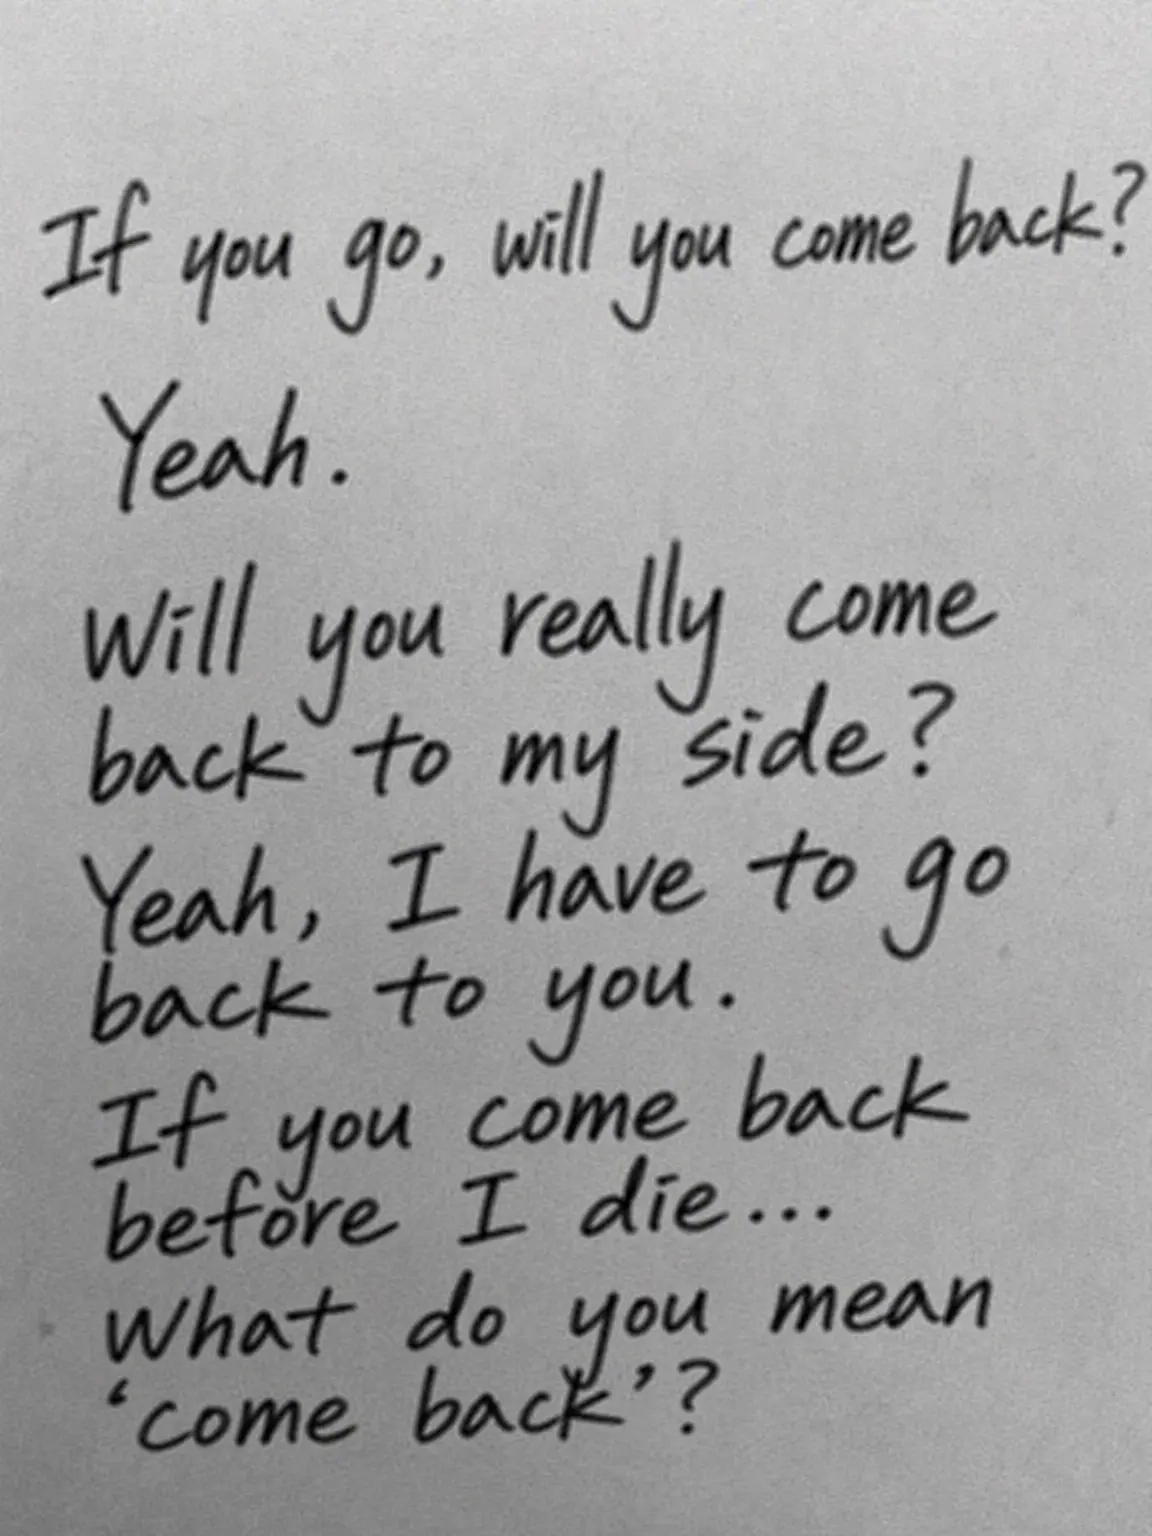 If you go, will you come back?
Yeah.
Will you really come
back to my side?
Yeah, I have to go
back to you.
If you come back
before I die...
What do you mean
‘come back’?